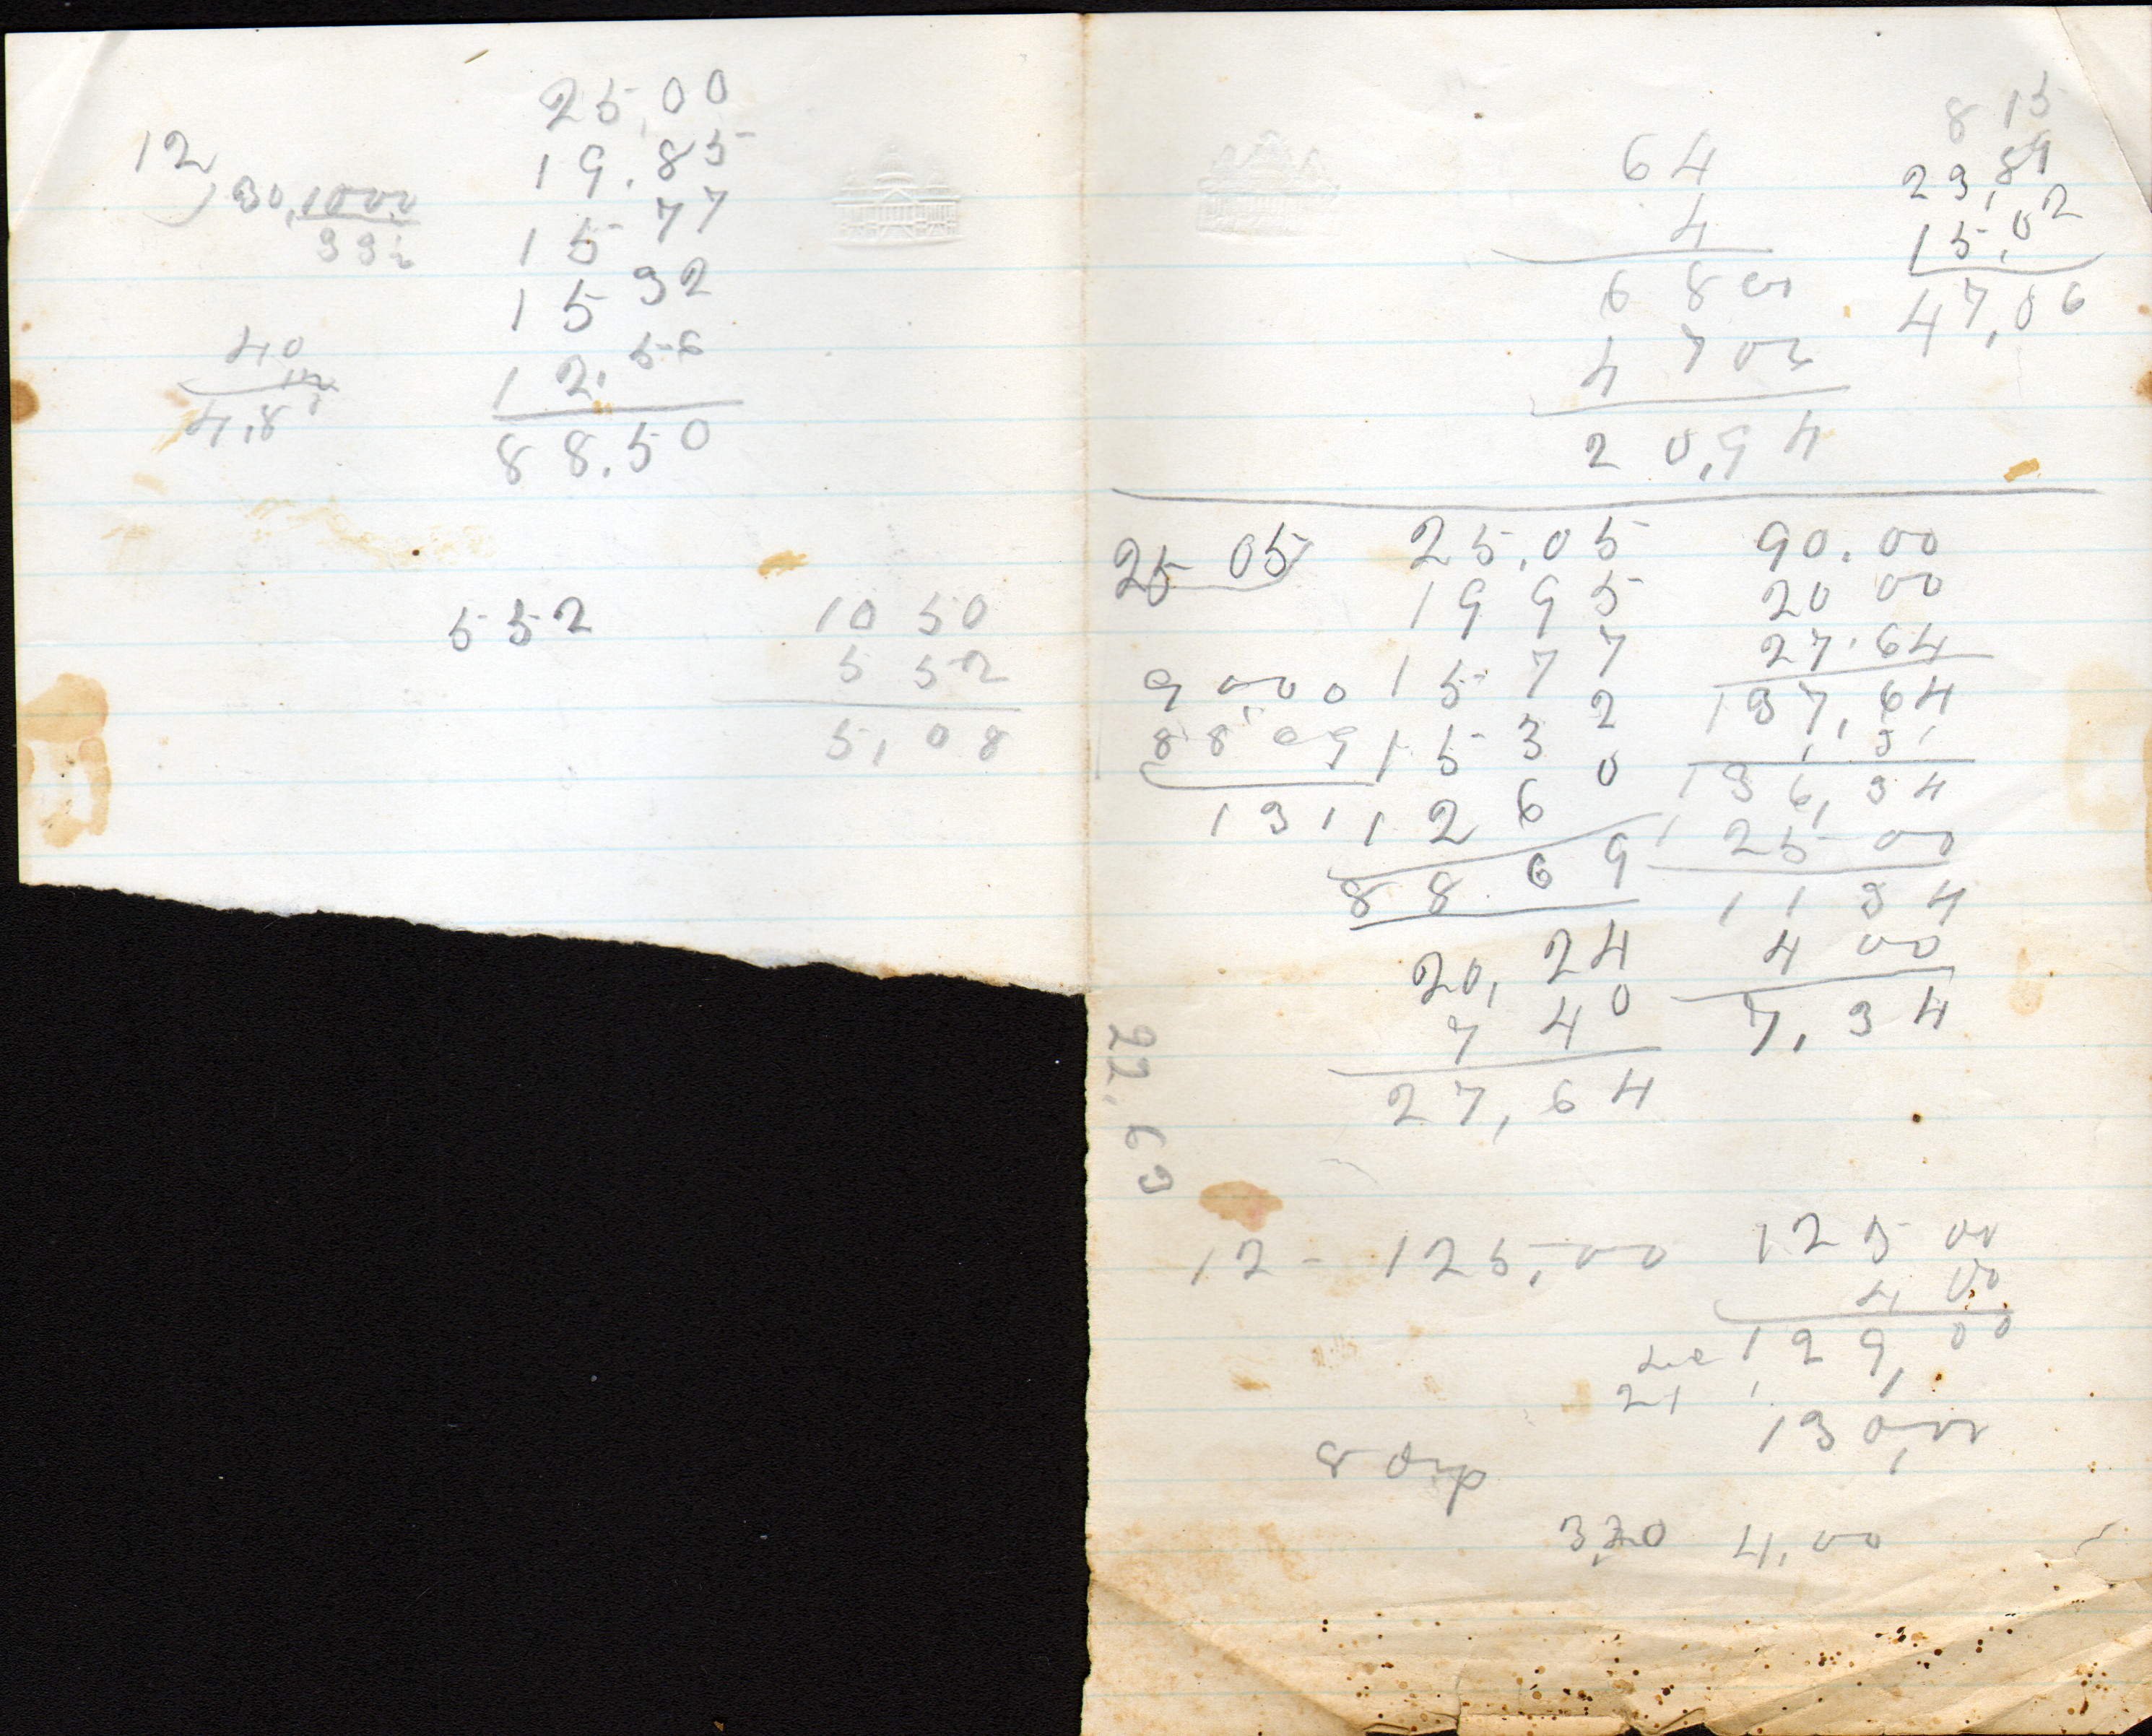 25,00
12 19.85
30, 1000
15 77
332
15 32
40
12
12,56
4,8
88.50
552
10 50
5 52
5,08
8 15
64
23,89
4
15,02
68 00
47,06
47 06
20,94
25 05
25,05
19 95
15 77
15 32
12 60
88.69
90 00
88 69
1 31
20,24
7 40
27,64
90.00
20 00
27.64
137,64
1,31
136,34
125 00
11 34
4 00
7,34
22.63
12 - 125,00
125 00
4 00
129,00
1,
130,00
21
3,20 4,00